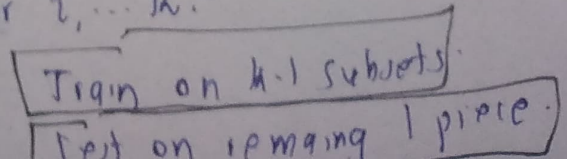 2, ... k.
Train on k-1 subsets.
Test on remaing 1 piece.